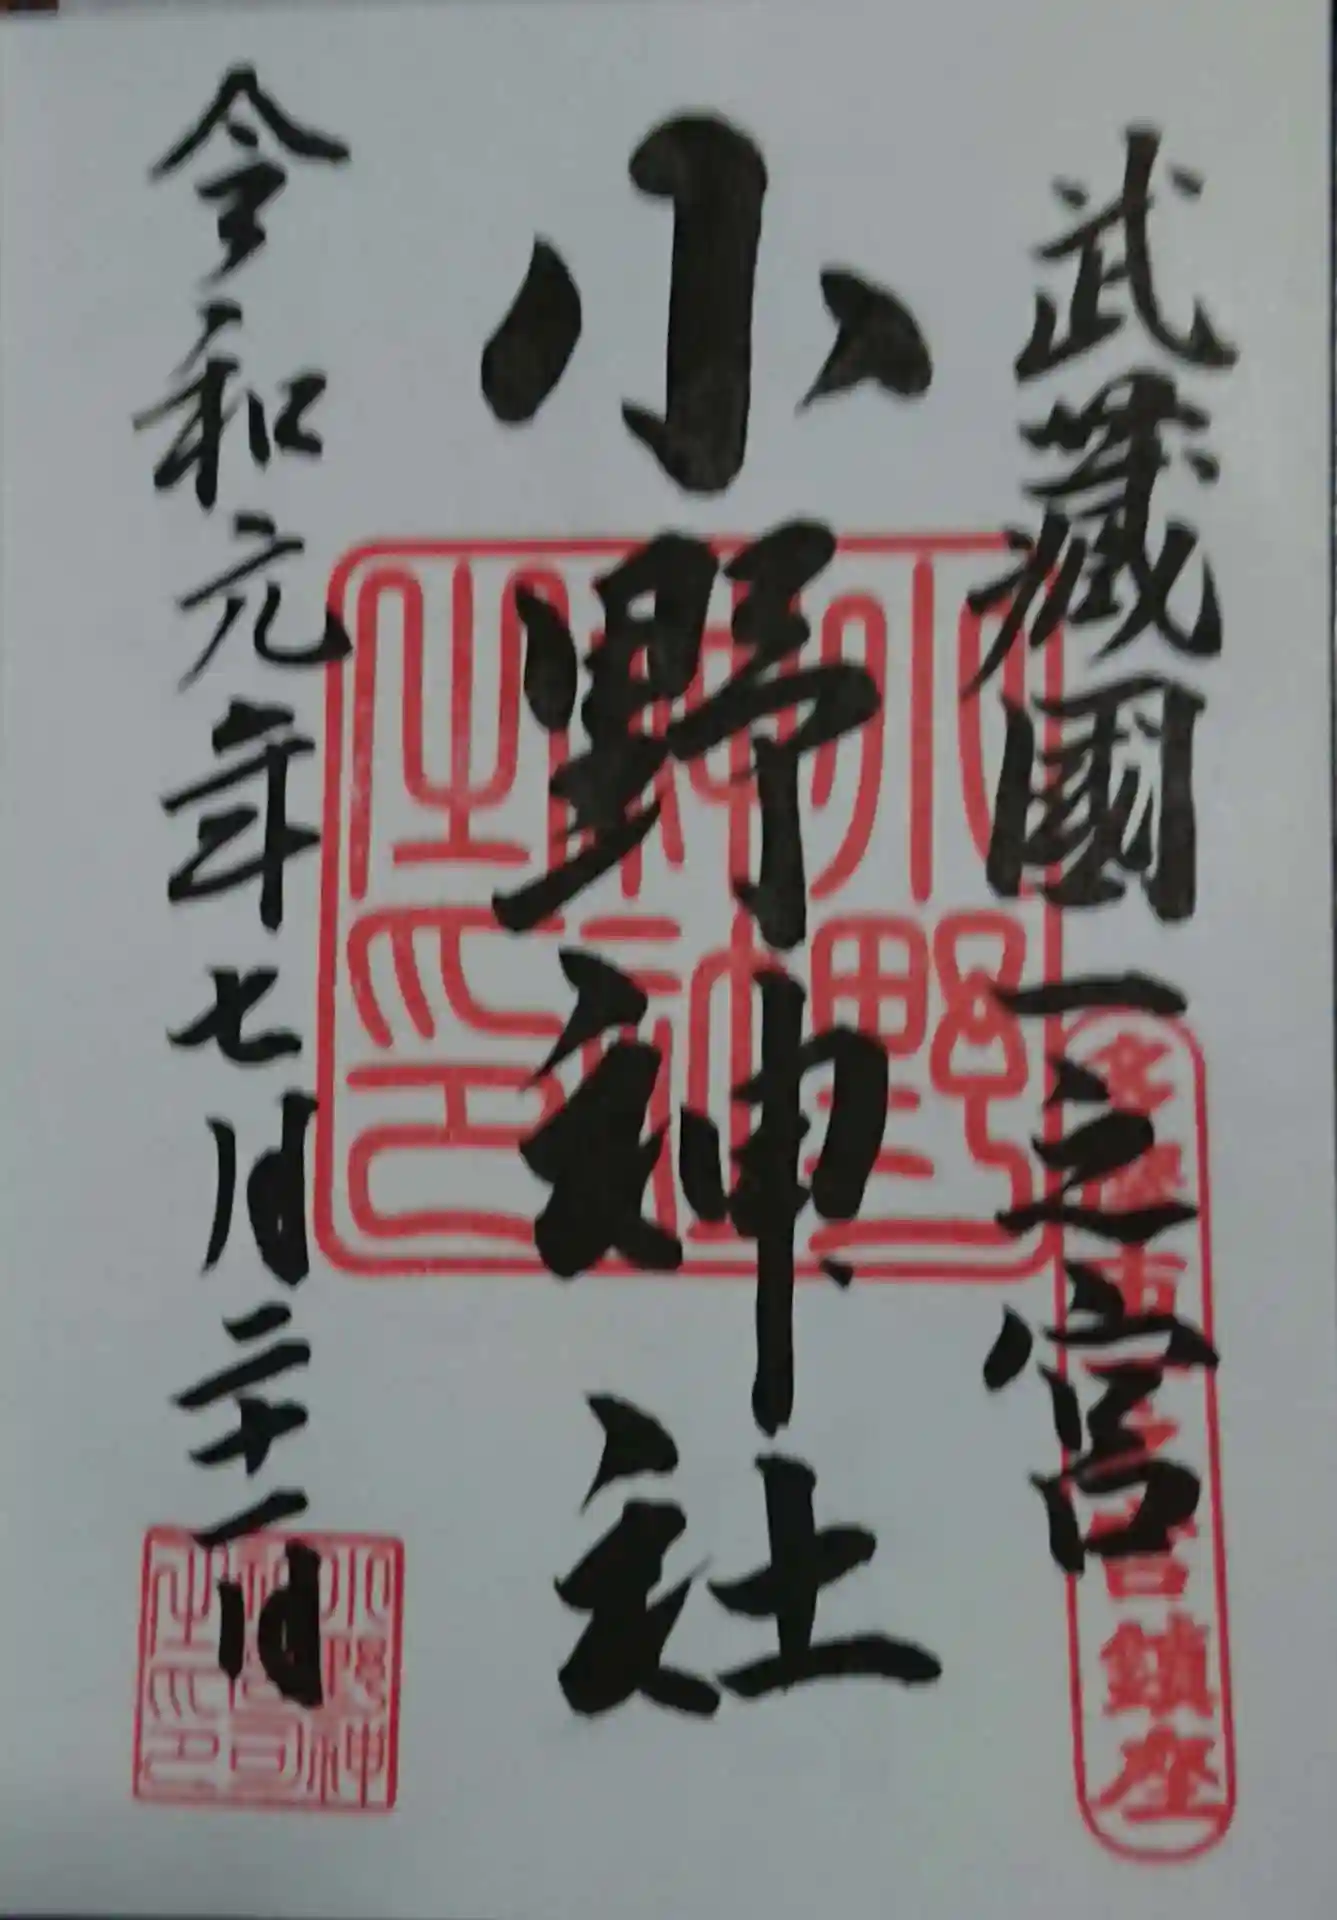 武藏國一之宮
多摩市一之宮鎮座
小野神社
小野神社之印
令和元年七月二十一日